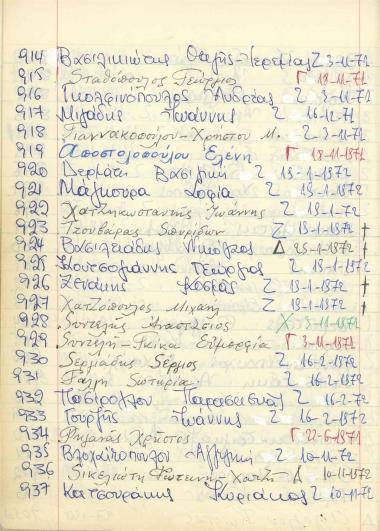 914 Βασιλικιώτης Θαγῆς-Ἱερεμίας Ζ 3-11-71
915 Σταθόπουλος Γεώργιος Γ 18-11-71
916 Γκολφινόπουλος Ἀνδρέας Ζ 3-11-71
917 Μιχάδης Ἰωάννης Ζ 16-12-71
918 Γιαννακοπούλου-Χρήστου Μ. Ζ 3-11-72
919 Ἀποστολοπούλου Ἑλένη Γ 18-11-1972
920 Δερβάτη Βασιλική Ζ 13-1-1972
921 Μάγκουρα Σοφία Ζ 13-1-1972
922 Χατζηκωσταντής Ἰωάννης Ζ 13-1-72
923 Τζουβάρας Σπυρίδων Ζ 13-1-1972 †
924 Βασιλειάδης Νικόλαος Δ 25-1-1972 †
925 Κουτσογιάννης Γεώργιος Ζ 13-1-1972
926 Ξενάκης Κοσμᾶς Ζ 13-1-1972 †
927 Χατζόπουλος Μιχαήλ Ζ 13-1-1972 †
928 Συντελῆς Ἀναστάσιος Χ 3-11-1972
929 Συντελῆ-Γκίκα Εὐμορφία Γ 3-11-1972
930 Σερμιάδης Σέρμος Ζ 16-2-1972
931 Γάλη Σωτηρία Ζ 16-2-1972
932 Παπίρογλου Παρασκευᾶς Ζ 16-2-72
933 Γουρζῆς Ἰωάννης Ζ 16-2-1972
934 Φηγανᾶς Χρῆστος Γ 22-6-1971
935 Βλαχοπούλου Ἀγγελική Ζ 10-11-72
936 Σικελιώτη Φωτεινή Χατζη- Δ 10-11-1972
937 Κατσουράκης Κυριάκος Ζ 10-11-72